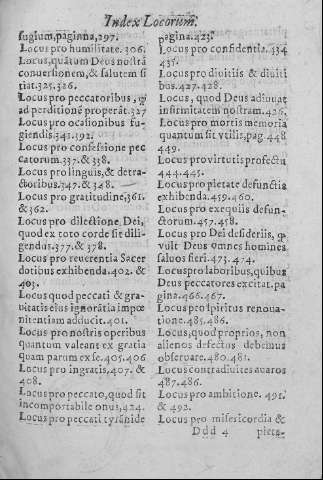 Index Locorum.
fugium, pagina, 297.
Locus pro humilitate. 306.
Locus, quātum Deus nostrā
conuersionem, & salutem si
tiat. 325. 326.
Locus pro peccatoribus, ꝙ
ad perditionē properāt. 327
Locus pro ocasionibus fu-
giendis. 341. 192.
Locus pro confessione pec
catorum. 337. & 338.
Locus pro linguis, & detra-
ctoribus. 347. & 348.
Locus pro gratitudine, 361.
& 362.
Locus pro dilectione, Dei,
quod ex toto corde sit dili-
gendus. 377. & 378.
Locus pro reuerentia Sacer
dotibus exhibenda. 402. &
403.
Locus quod peccati & gra-
uitatis eius ignorātia impœ
nitentiam adducit. 401.
Locus pro nostris operibus
quantum valeans ex gratia
quam parum ex se. 405. 406
Locus pro ingratis, 407. &
408.
Locus pro peccato, quod sit
incomportabile onus, 424.
Locus pro peccati tyrānide
pagina. 423.
Locus pro confidentia. 434
435.
Locus pro diuitiis & diuiti
bus. 427. 428.
Locus, quod Deus adiuuat
infirmitatem nostram. 426.
Locus pro mortis memoria
quantum sit vtilis, pag. 448
449.
Locus pro virtutis profectu
444. 445.
Locus pro pietate defunctis
exhibenda. 459. 460.
Locus pro exequiis defun-
ctorum. 457. 458.
Locus pro Dei desideriis, ꝙ
vult Deus omnes homines
saluos fieri. 473. 474.
Locus pro laboribus, quibus
Deus peccatores excitat. pa
gina. 466. 467.
Locus pro spiritus renoua-
tione. 485. 486.
Locus, quod proprios, non
alienos defectos debemus
obseruare. 480. 481.
Locus contra diuites auaros
487. 486.
Locus pro ambitione. 491.
& 492.
Locus pro misericordia &
Ddd 4 pieta-